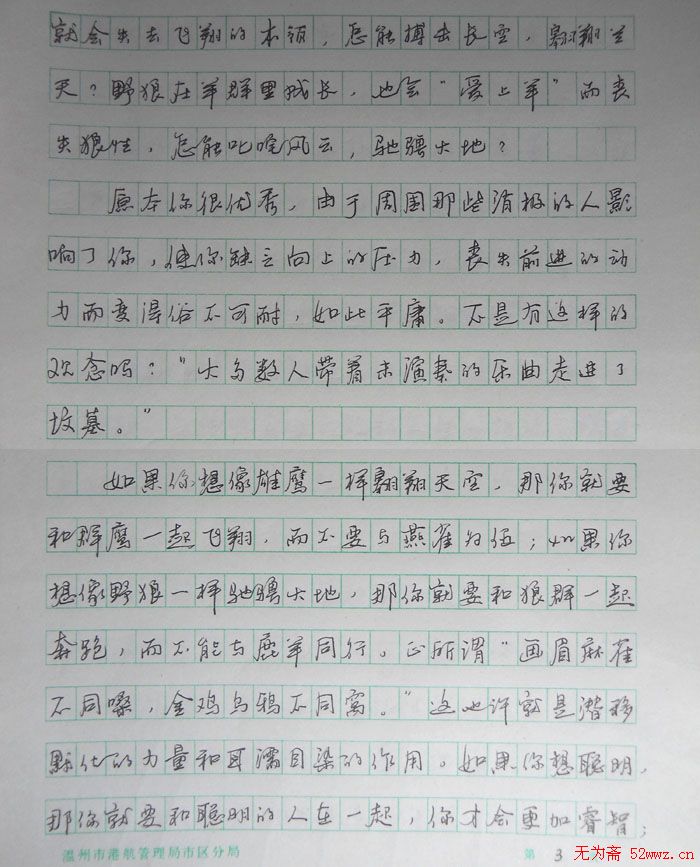 就会失去飞翔的本领，怎能搏击长空，翱翔兰
天？野狼在羊群里成长，也会“爱上羊”而丧
失狼性，怎能叱咤风云，驰骋大地？
原本你很优秀，由于周围那些消极的人影
响了你，使你缺乏向上的压力，丧失前进的动
力而变得俗不可耐，如此平庸。不是有这样的
观念吗？“大多数人带着未演奏的乐曲走进了
坟墓。”
如果你想像雄鹰一样翱翔天空，那你就要
和群鹰一起飞翔，而不要与燕雀为伍；如果你
想像野狼一样驰骋大地，那你就要和狼群一起
奔跑，而不能与鹿羊同行。正所谓“画眉麻雀
不同嗓，金鸡乌鸦不同窝。”这也许就是潜移
默化的力量和耳濡目染的作用。如果你想聪明，
那你就要和聪明的人在一起，你才会更加睿智；
温州市港航管理局市区分局 第 3
无为斋 52wwz.cn